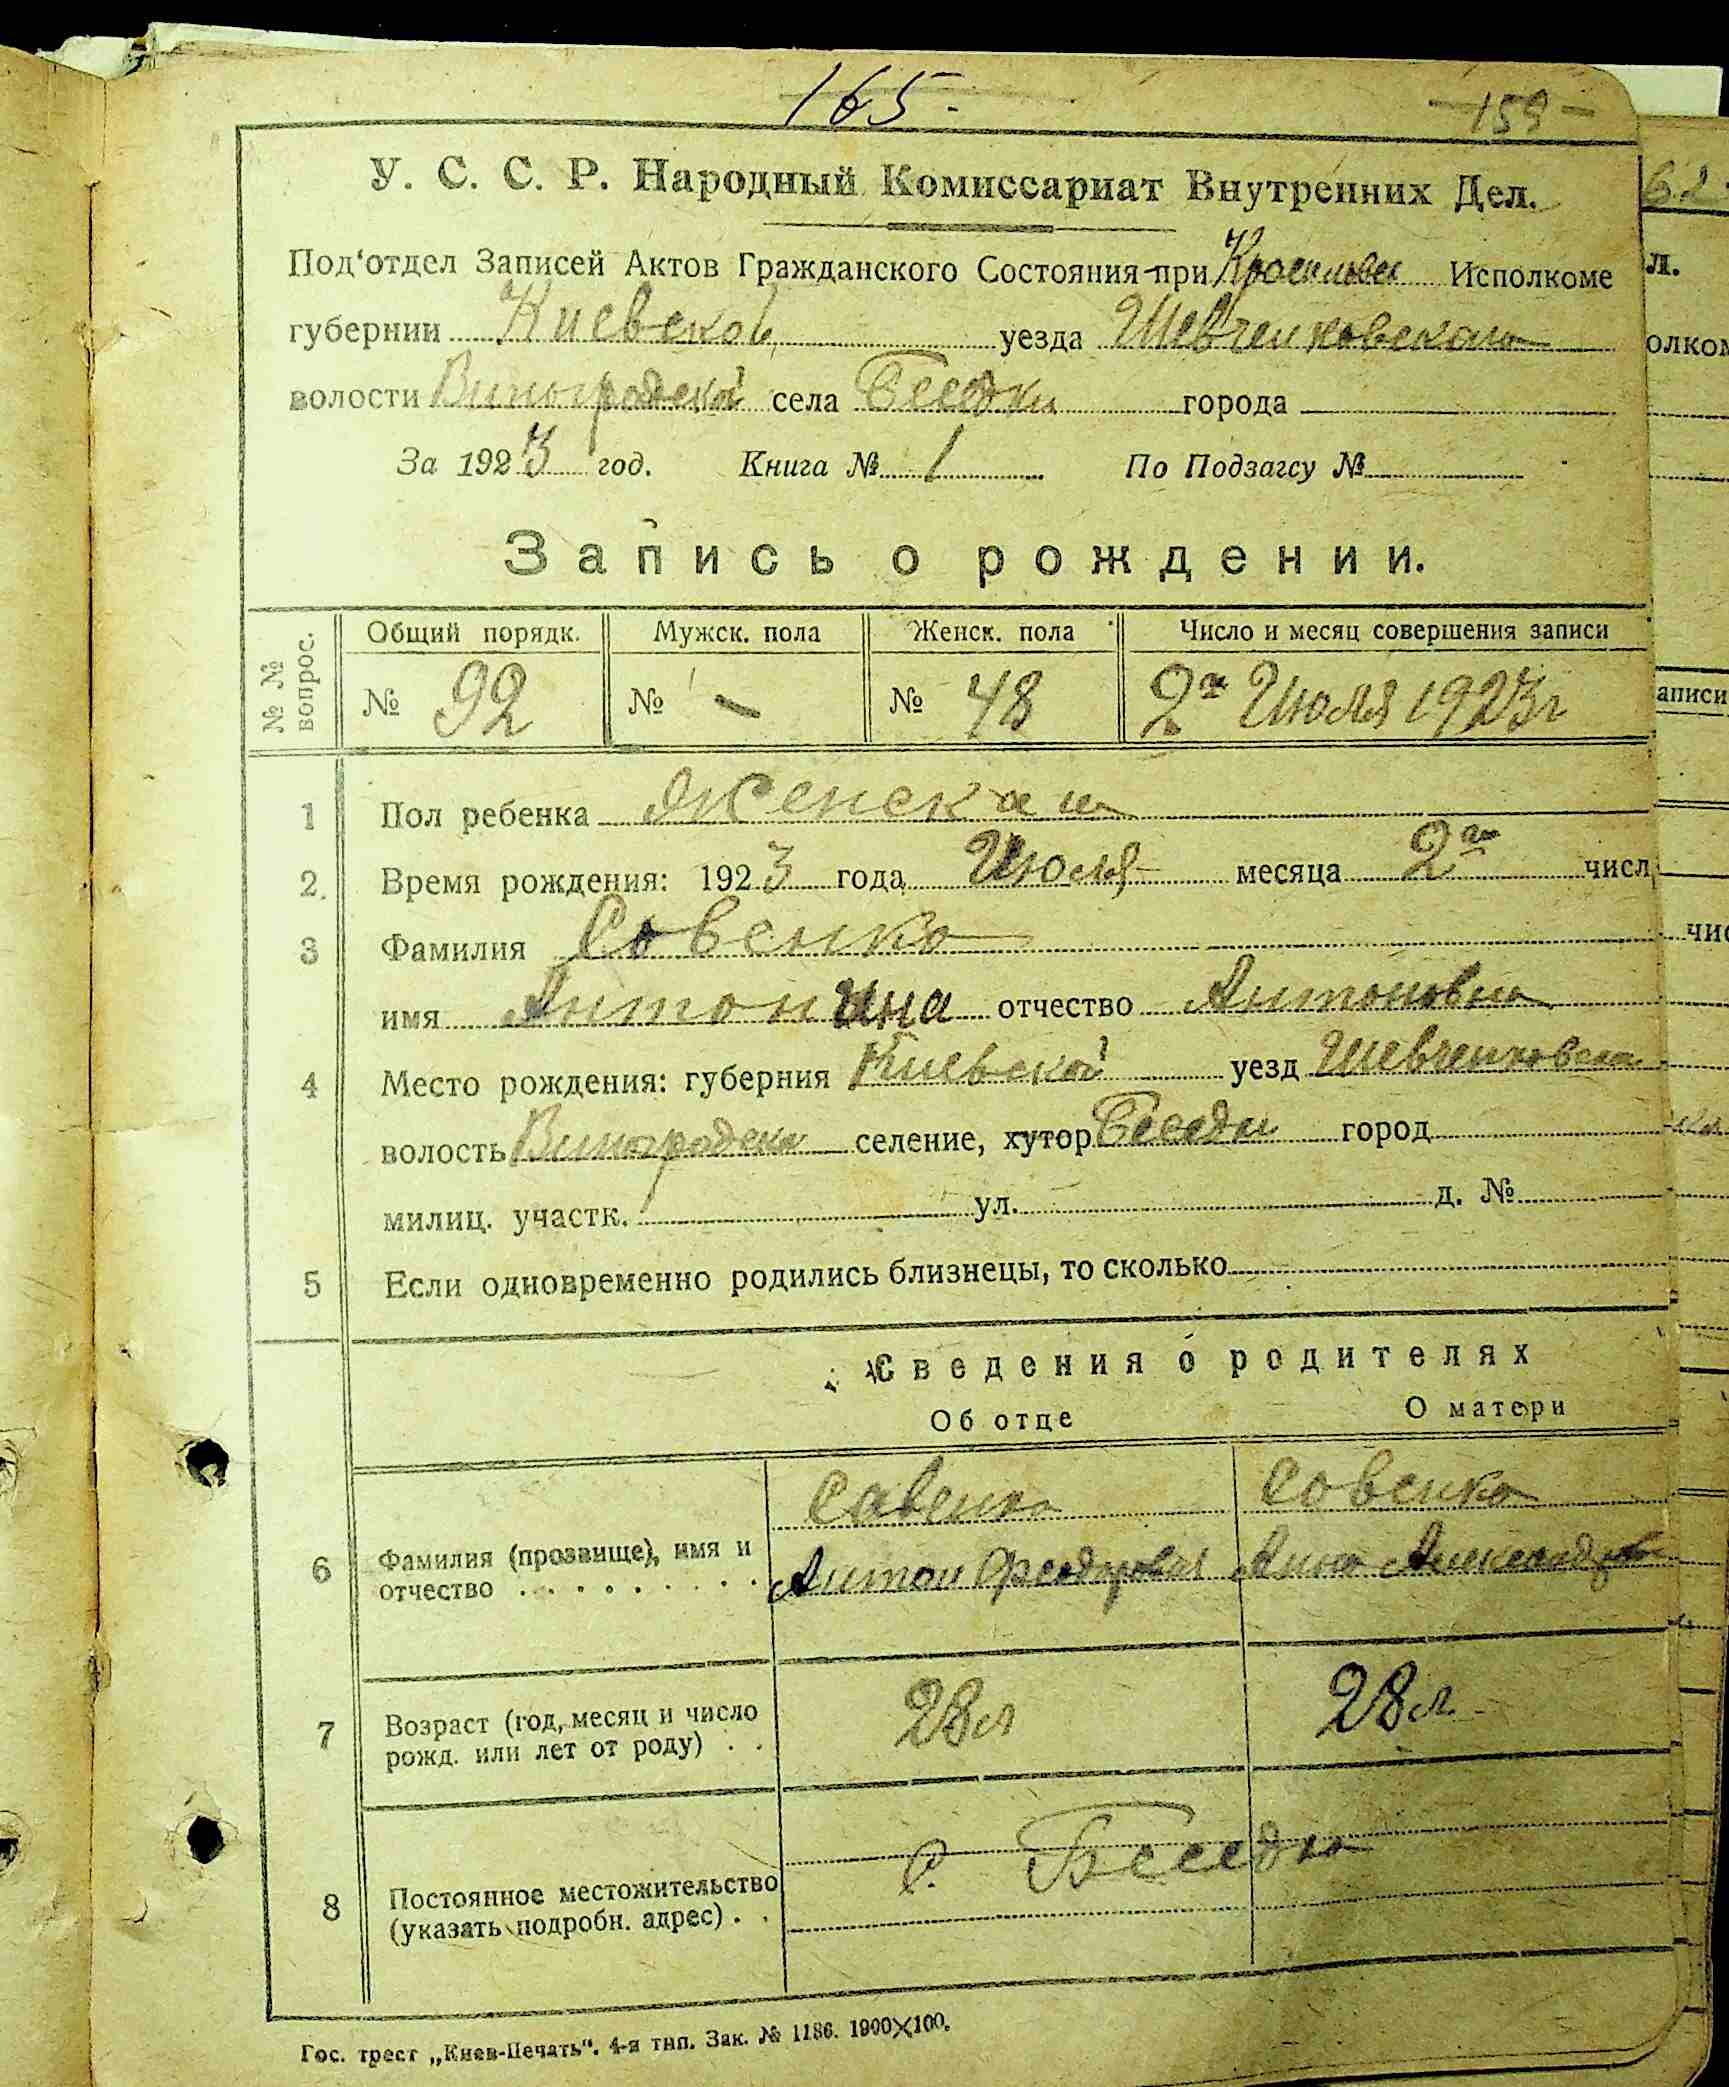 165.
159
У. С. С. Р. Народный Комиссариат Внутренних Дел.
Под‘отдел Записей Актов Гражданского Состояния при Исполкоме
губернии Киевской уезда Шевченковского
волости Виноградской села Беседки города
За 1923 год. Книга № 1 По Подзагсу №
Запись о рождении.
№ № вопрос. Общий порядк. Мужск. пола Женск. пола Число и месяц совершения записи
№ 92 № — № 48 2го Июля 1923 г
1 Пол ребенка Женская
2. Время рождения: 1923 года Июля месяца 2го числ
3 Фамилия Совенко
имя Антонина отчество Антоновна
4 Место рождения: губерния Киевской уезд Шевченковск
волость Виноградска селение, хутор город
милиц. участк. ул. д. №
5 Если одновременно родились близнецы, то сколько
Сведения о родителях
Об отце О матери
Савенко Совенко
6 Фамилия (прозвище), имя и
отчество . . . . . . . . . Антон Феодорович Анна Александров
7 Возраст (год, месяц и число
рожд. или лет от роду) . . 28 л 28 л.
8 Постоянное местожительство
(указать подробн. адрес) . . с. Беседка
Гос. трест „Киев-Печать“. 4-я тип. Зак. № 1186. 1900×100.